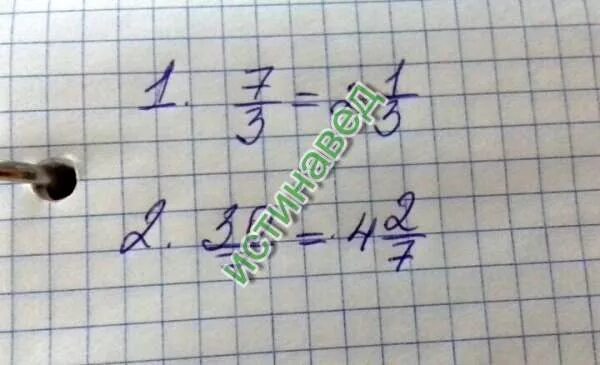 1. 7/3 = 1/3
2. = 4 2/7
истинавед